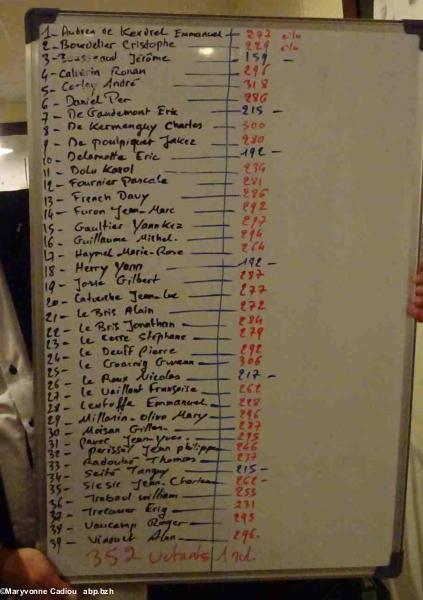 1- Aubren de Kerdrel Emmanuel - 277 élu
2- Bourdelier Cristophe - 229 élu
3- Jérôme 159 -
4- Calvarin Ronan - 296
5- Corlay André 318
6- Daniel Per 286
7- De Gaudemont Eric 215 -
8- De Kermenguy Charles 300
9- De Poulpiquet Jakez 280
10- Delamotte Eric 192 -
11- Dolu Karol 234
12- Fournier Pascale 281
13- French Davy 286
14- Furon Jean-Marc 292
15- Gaultier Yann Kez 297
16- Guillaume Michel 294
17- Haymel Marie-Rose 264
18- Herry Yann 192 -
19- Josse Gilbert 287
20- Latouche Jean-Luc 277
21- Le Bris Alain 272
22- Le Bris Jonathan 284
23- Le Corre Stéphane 279
24- Le Deuff Pierre 292
25- Le Croarnig Gwenn 306
26- Le Roux Nicolas 217 -
27- Le Vaillant Françoise 262
28- Lentoffe Emmanuel 228
29- Millarin-Olivo Mary 296
30- Moisan Gilles 287
31- Jean-Yves 295
32- Perisset Jean philippe 246
33- Radoubé Thomas 237
34- Seité Tanguy 215 -
35- Sicsic Jean-Charles 262 -
36- Trebaul William 255
37- Trecauer Erig 231
38- Vaucamp Roger 295
39- Viaouet Alan 296
352 Votants
©Maryvonne Cadiou abp.bzh